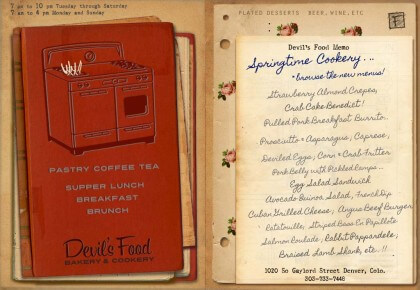 7 pm to 10 pm Tuesday through Saturday
7 am to 4 pm Monday and Sunday
PASTRY COFFEE TEA
SUPPER LUNCH
BREAKFAST
BRUNCH
Devil's Food
BAKERY & COOKERY
PLATED DESSERTS BEER, WINE, ETC
F
Devil's Food Memo
Springtime Cookery...
*browse the new menus!
Strawberry Almond Crepes,
Crab Cake Benedict!
Pulled Pork Breakfast Burrito.
Prosciutto & Asparagus, Caprese,
Deviled Eggs, Corn & Crab Fritter
Pork Belly with Pickled Ramps...
Egg Salad Sandwich
Avocado Quinoa Salad, French Dip
Cuban Grilled Cheese, Angus Beef Burger,
Ratatouille, Striped Bass En Papillote
Salmon Roulade, Rabbit Pappardele,
Braised Lamb Shank, etc. !!
1020 So Gaylord Street Denver, Coln.
303-733-7448